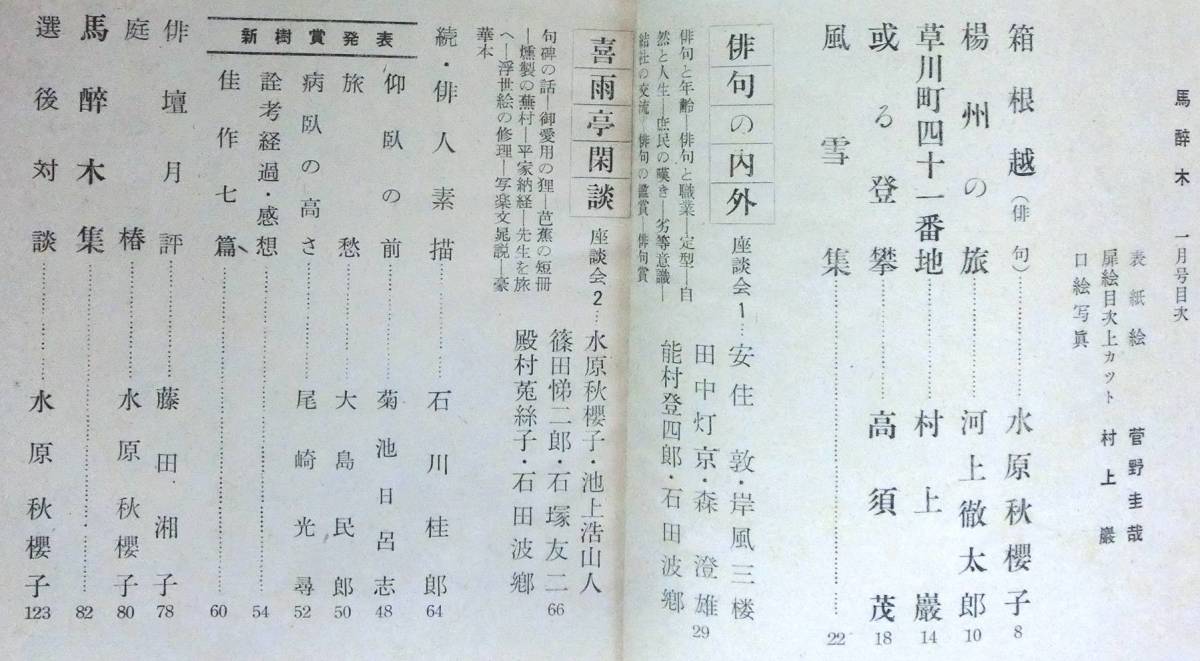 馬醉木 一月号目次
表紙絵 菅野圭哉
扉絵目次上カット 村上巖
口絵写眞
箱根越（俳句）……水原秋櫻子 8
楊州の旅……河上徹太郎 10
草川町四十一番地……村上巖 14
或る登攀……高須茂 18
風雪集……22
俳句の内外 座談会1…安住敦・岸風三楼
田中灯京・森澄雄
能村登四郎・石田波郷
29
俳句と年齢―俳句と職業―定型―自
然と人生―庶民の嘆き―劣等意識―
結社の交流―俳句の鑑賞―俳句賞
喜雨亭閑談 座談会2…水原秋櫻子・池上浩山人
篠田悌二郎・石塚友二
殿村菟絲子・石田波郷
66
句碑の話―御愛用の狸―芭蕉の短冊
―燻製の蕪村―平家納経―先生を旅
へ―浮世絵の修理―写楽文晁説―豪
華本
続・俳人素描……石川桂郎 64
新樹賞発表
仰臥の前……菊池日呂志 48
旅愁……大島民郎 50
病臥の高さ……尾崎光尋 52
詮考経過・感想……54
佳作七篇……60
俳壇月評……藤田湘子 78
庭椿……水原秋櫻子 80
馬醉木集……82
選後対談……水原秋櫻子 123